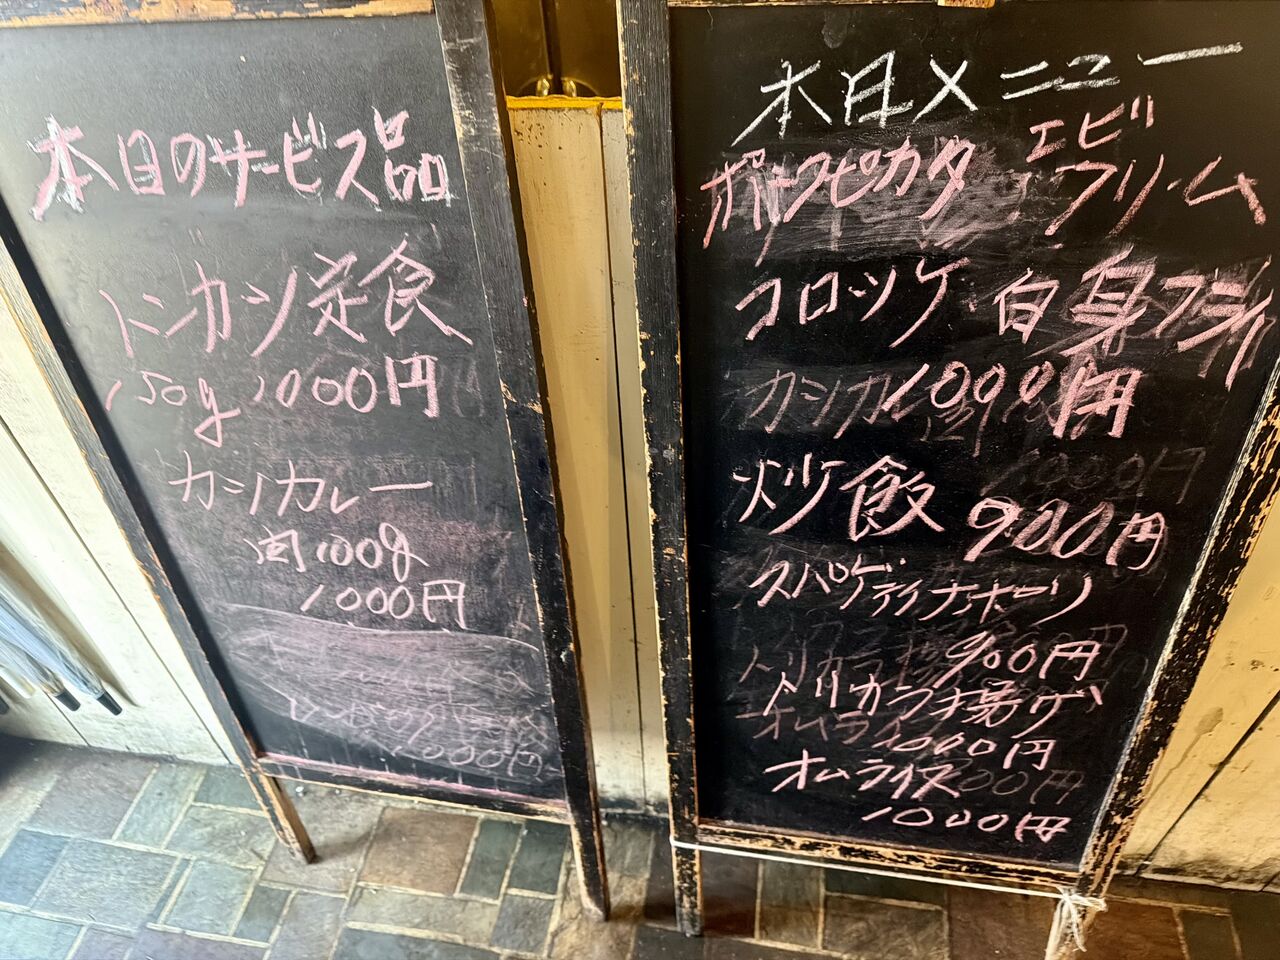 本日のサービス品
トンカツ定食
150g 1000円
カツカレー
肉100g
1000円
本日メニュー
ポークピカタ
エビ
クリーム
コロッケ
白身フライ
1000円
炒飯
900円
スパゲティナポリ
900円
トリカラ揚ゲ
1000円
オムライス
1000円